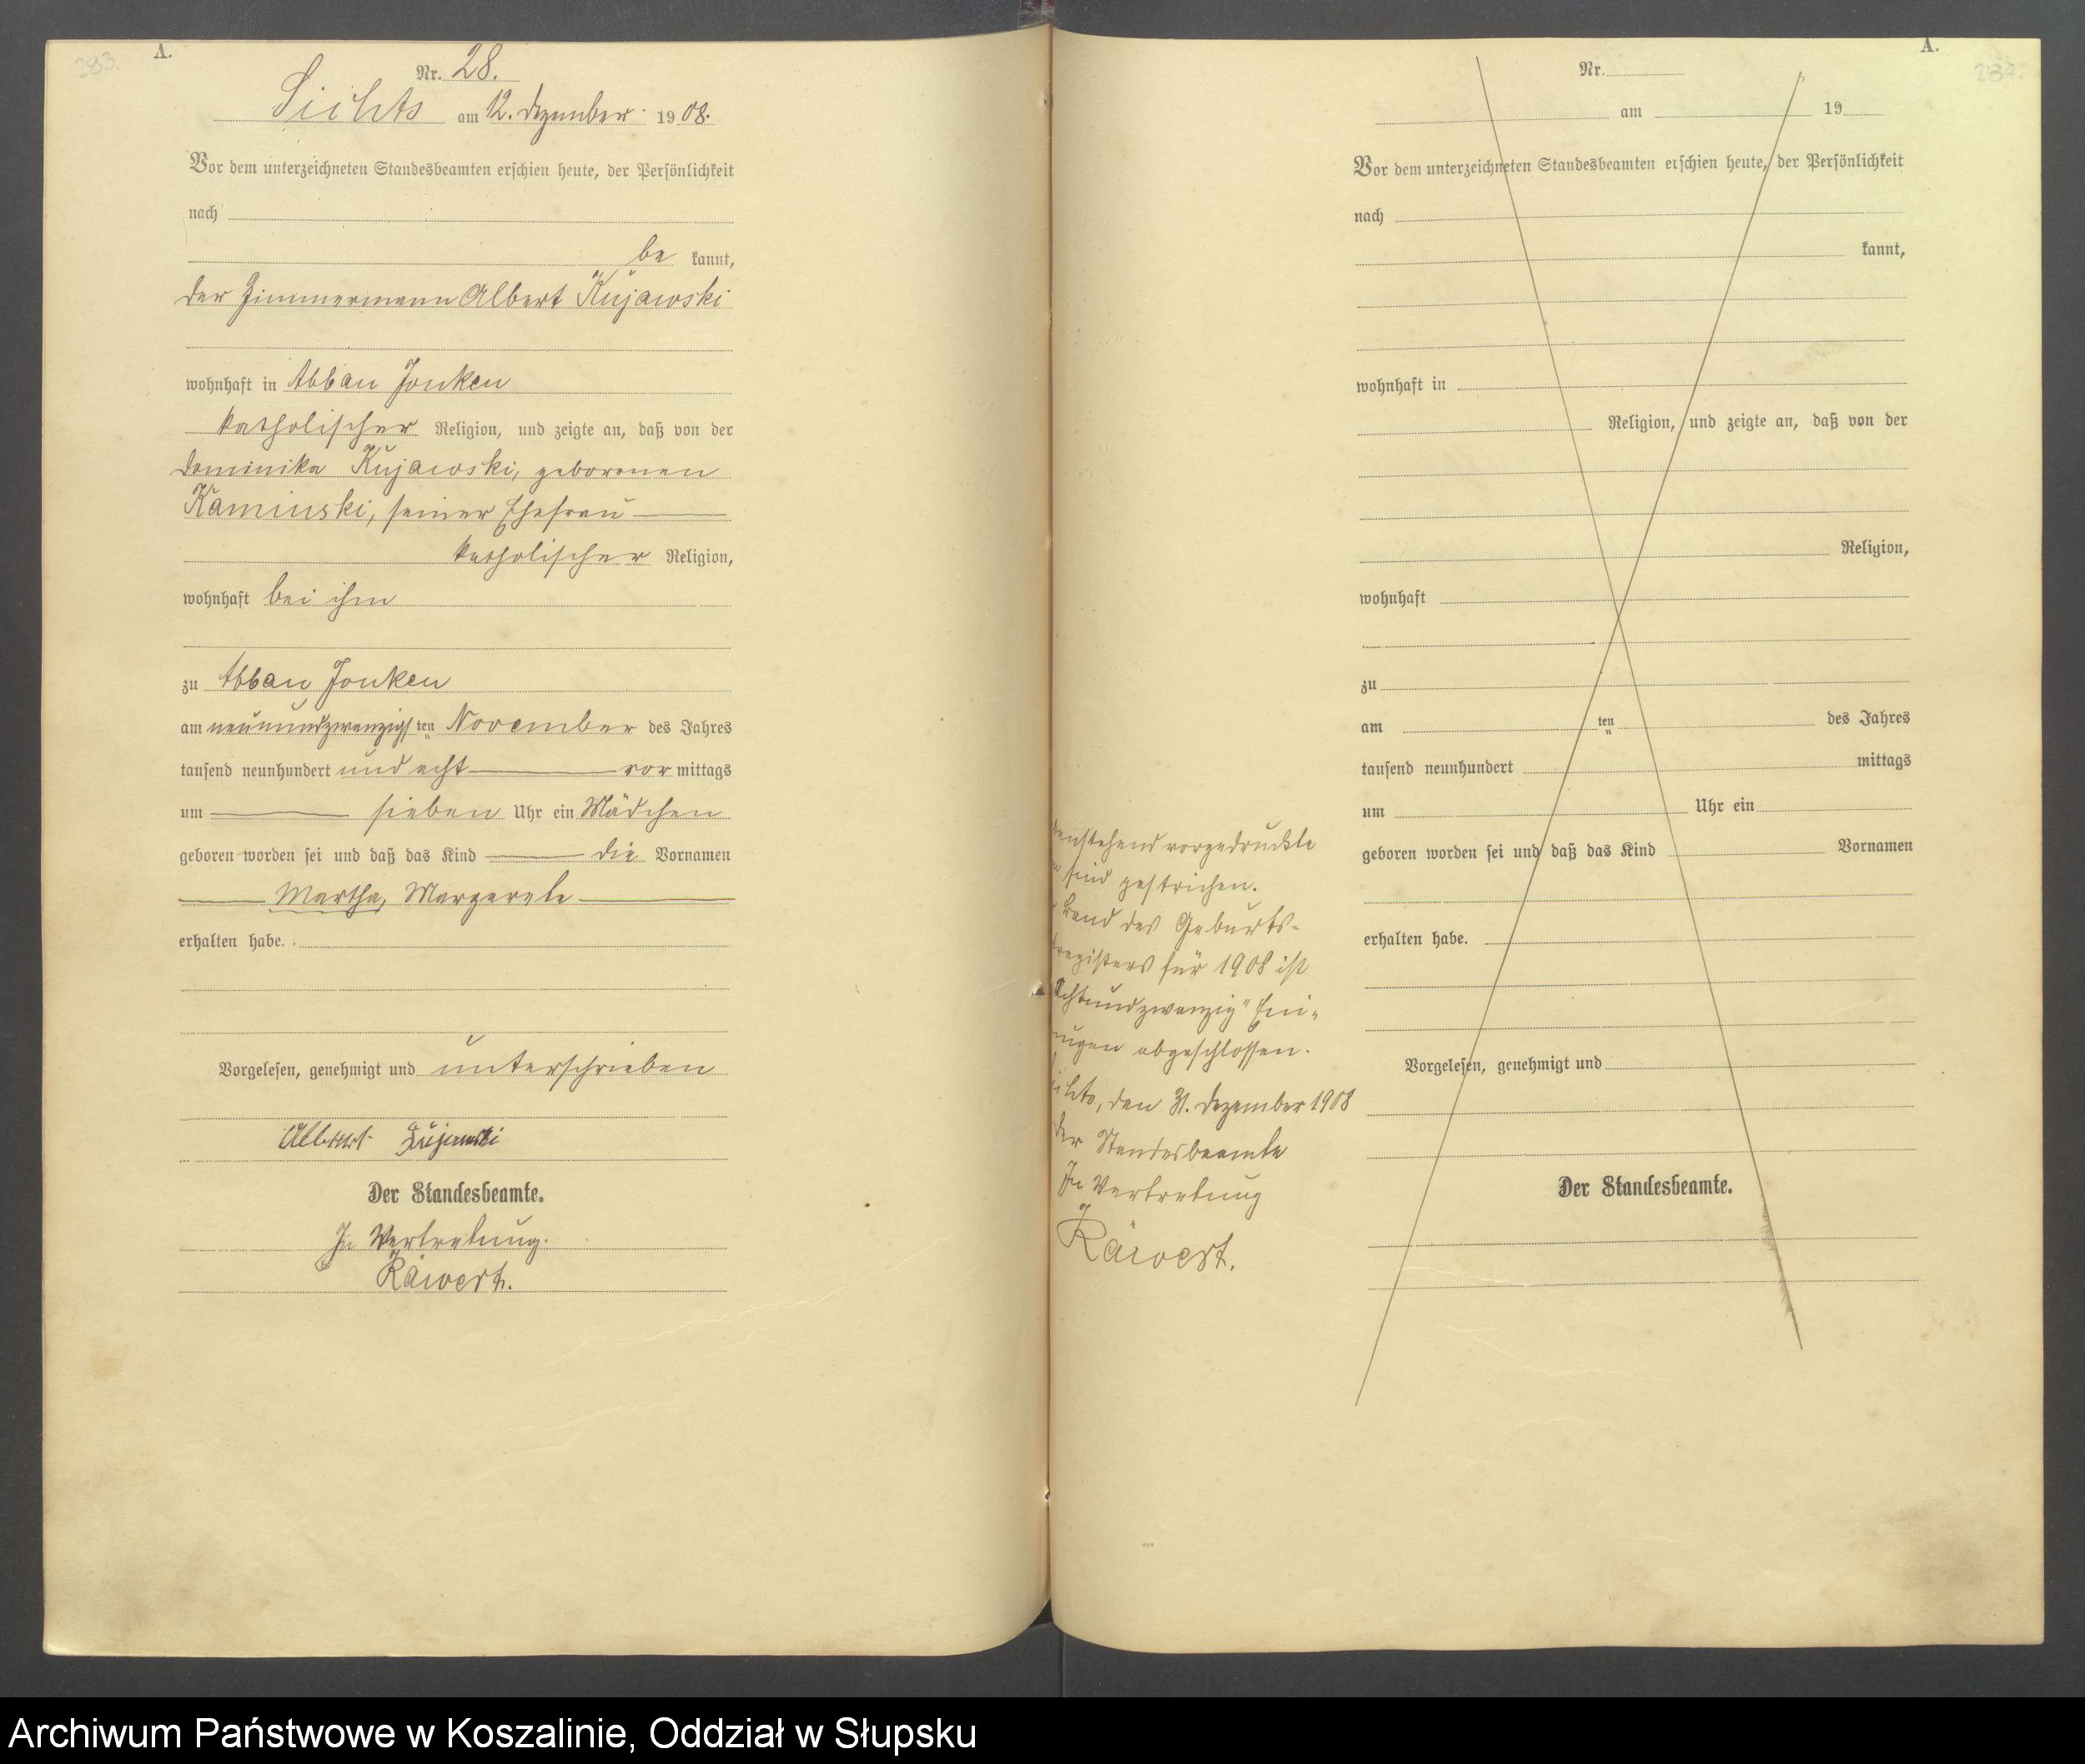 283.
A.
Nr. 28.
Lichts am 12. Dezember 1908.
Vor dem unterzeichneten Standesbeamten erschien heute, der Persönlichkeit
nach
be kannt,
der Zimmermann Albert Kujawski
wohnhaft in Abbau Jonken
katholischer Religion, und zeigte an, daß von der
Dominika Kujawski, geborenen
Kaminski, seiner Ehefrau
katholischer Religion,
wohnhaft bei ihm
zu Abbau Jonken
am neunundzwanzigsten November des Jahres
tausend neunhundert und acht vor mittags
um sieben Uhr ein Mädchen
geboren worden sei und daß das Kind die Vornamen
Martha, Margarete
erhalten habe.
Vorgelesen, genehmigt und unterschrieben
Albert Kujawski
Der Standesbeamte.
In Vertretung.
A.
284.
Nr.
am 19
Vor dem unterzeichneten Standesbeamten erschien heute, der Persönlichkeit
nach
kannt,
wohnhaft in
Religion, und zeigte an, daß von der
Religion,
wohnhaft
zu
am ten des Jahres
tausend neunhundert mittags
um Uhr ein
geboren worden sei und daß das Kind Vornamen
erhalten habe.
Vorgelesen, genehmigt und
Der Standesbeamte.
enstehend vorgedruckte
sind gestrichen.
Band des Geburts-
registers für 1908 ist
Achtundzwanzig" Ein-
ugen abgeschlossen.
ichts, den 31. Dezember 1908
Der Standesbeamte
In Vertretung
Archiwum Państwowe w Koszalinie, Oddział w Słupsku